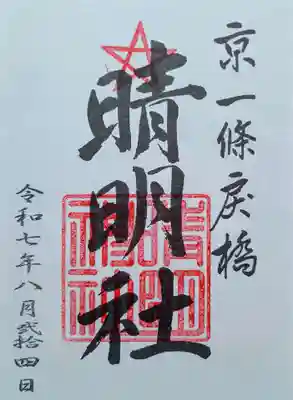 京一條戻橋
晴明社
晴明神社
令和七年八月弐拾四日